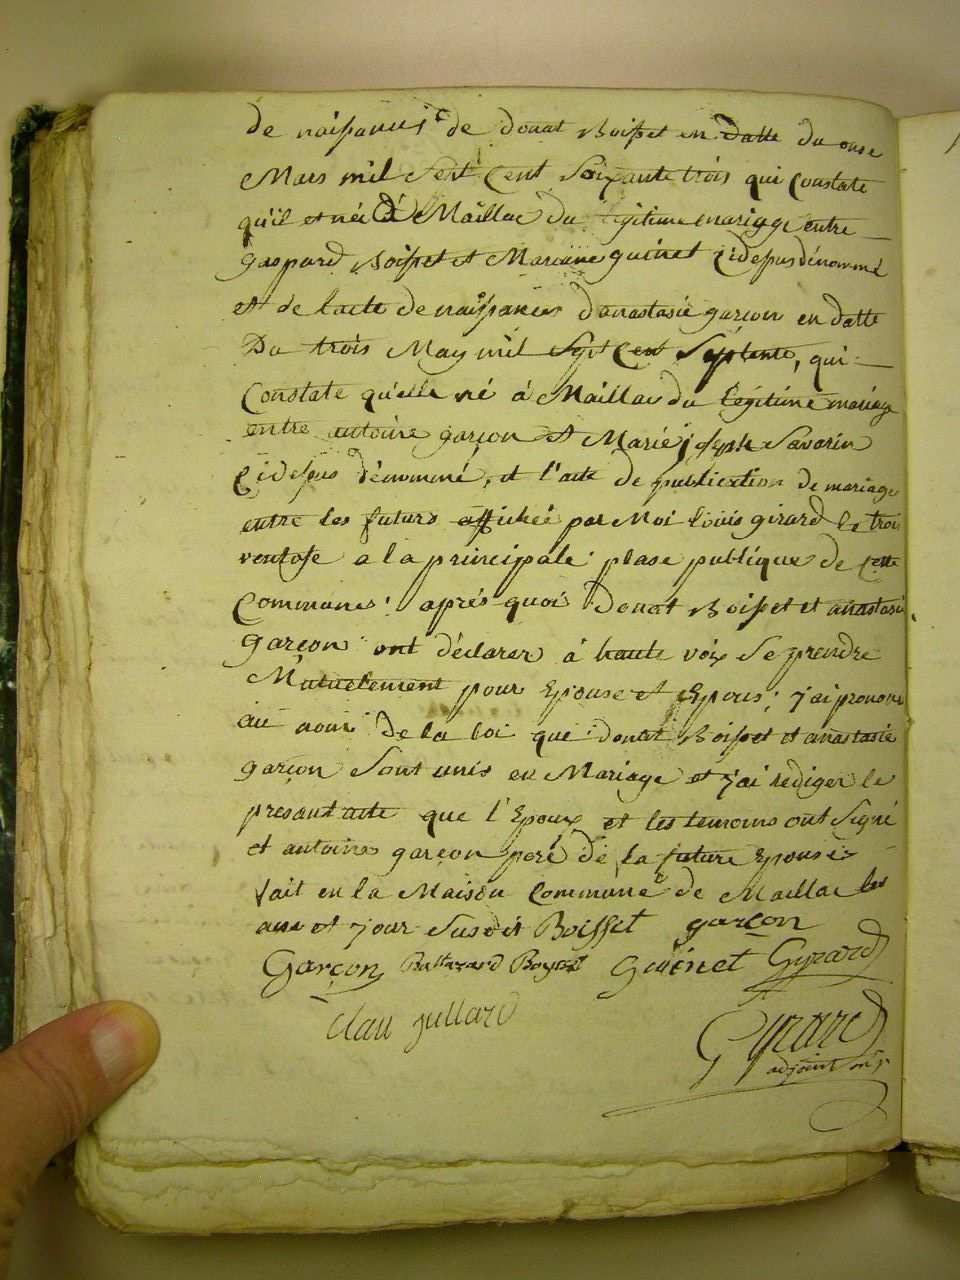 de naissances de donat Boisset en datte du onse
Mars mil Sept Cent Soixante trois qui Constate
qu'il est née à Maillac du legitime mariage entre
gaspard Boisset et Mariane guinet Cidessus dénommé
et de l'acte de naissances d'anastasie garçon en datte
Du trois May mil Sept Cent Septente, qui
Constate qu'elle né à Maillac du legitime mariage
entre antoine garçon et Marie joseph Savarin
Cidessus dénommé, et l'acte de publication de mariage
entre les futurs affichée par Moi louis girard le trois
ventose a la principale plase publique de Cette
Communes; aprés quoi Donat Boisset et anastasie
garçon ont déclarer à haute voix Se prendre
Mutuelement pour Epouse et Epous; j'ai prononcé
au nom de la loi que donat Boisset et anastasie
garçon Sont unis en Mariage et j'ai rediger le
presant acte que l'Epoux et les temoins ont Signé
et antoine garçon peré de la future Epouse
fait en la Maison Commune de Maillac les
ans et jour Susdit Boisset garçon
Garçon Baltazard Guinet Gyrard
Clau jullard
Gyrard
adjoint